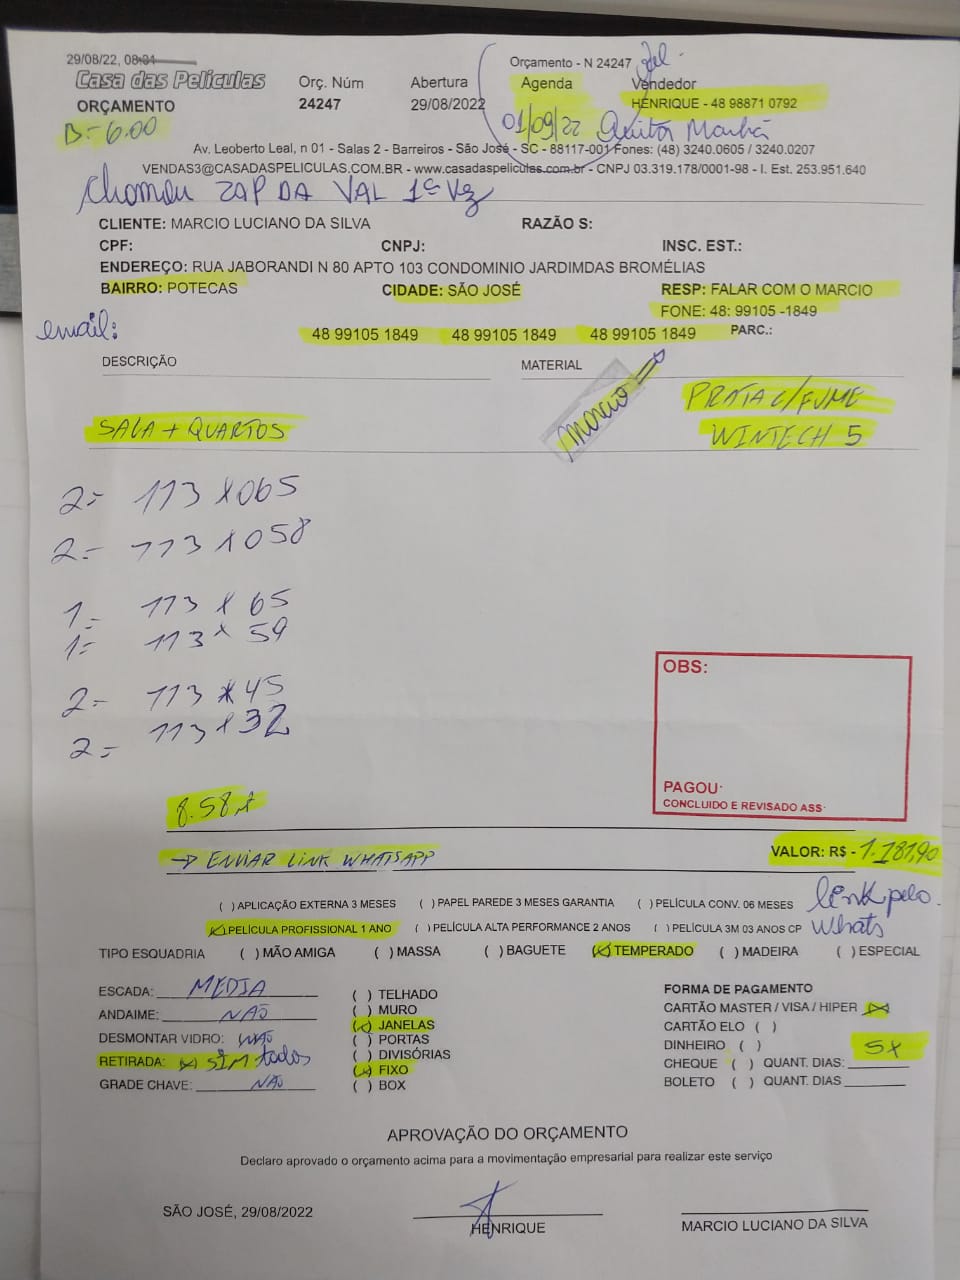 29/08/22, 08:01
Orçamento - N 24247
Casa das Películas
Orç. Núm
Abertura
Agenda
Vendedor
ORÇAMENTO
24247
29/08/2022
HENRIQUE - 48 98871 0792
B = 6.00
01/09/22 Quinta Manhã
Av. Leoberto Leal, n 01 - Salas 2 - Barreiros - São José - SC - 88117-001 Fones: (48) 3240.0605 / 3240.0207
VENDAS3@CASADASPELICULAS.COM.BR - www.casadaspeliculas.com.br - CNPJ 03.319.178/0001-98 - I. Est. 253.951.640
chamou ZAP DA VAL 1ª Vez
CLIENTE: MARCIO LUCIANO DA SILVA
RAZÃO S:
CPF:
CNPJ:
INSC. EST.:
ENDEREÇO: RUA JABORANDI N 80 APTO 103 CONDOMINIO JARDIMDAS BROMÉLIAS
BAIRRO: POTECAS
CIDADE: SÃO JOSÉ
RESP: FALAR COM O MARCIO
FONE: 48: 99105 -1849
email:
48 99105 1849 48 99105 1849 48 99105 1849
PARC.:
DESCRIÇÃO
MATERIAL
marcio
PRATA C/FUME
SALA + QUARTOS
WINTECH 5
2= 113 X 065
2= 113 X 058
1= 113 X 65
1= 113 X 59
2= 113 X 45
2= 113 X 32
OBS:
PAGOU·
CONCLUIDO E REVISADO ASS·
8.58
→ ENVIAR LINK WHATSAPP
VALOR: R$ - 1.181,90
( ) APLICAÇÃO EXTERNA 3 MESES ( ) PAPEL PAREDE 3 MESES GARANTIA ( ) PELÍCULA CONV. 06 MESES
link pelo
(X) PELÍCULA PROFISSIONAL 1 ANO ( ) PELÍCULA ALTA PERFORMANCE 2 ANOS ( ) PELÍCULA 3M 03 ANOS CP
Whats
TIPO ESQUADRIA ( ) MÃO AMIGA ( ) MASSA ( ) BAGUETE (X) TEMPERADO ( ) MADEIRA ( ) ESPECIAL
ESCADA: MEDIA
ANDAIME: NÃO
DESMONTAR VIDRO: NÃO
RETIRADA: (X) SIM todos
GRADE CHAVE: NÃO
( ) TELHADO
( ) MURO
(X) JANELAS
( ) PORTAS
( ) DIVISÓRIAS
(X) FIXO
( ) BOX
FORMA DE PAGAMENTO
CARTÃO MASTER / VISA / HIPER (X)
CARTÃO ELO ( )
DINHEIRO ( )
5X
CHEQUE ( ) QUANT. DIAS:
BOLETO ( ) QUANT. DIAS
APROVAÇÃO DO ORÇAMENTO
Declaro aprovado o orçamento acima para a movimentação empresarial para realizar este serviço
SÃO JOSÉ, 29/08/2022
HENRIQUE
MARCIO LUCIANO DA SILVA